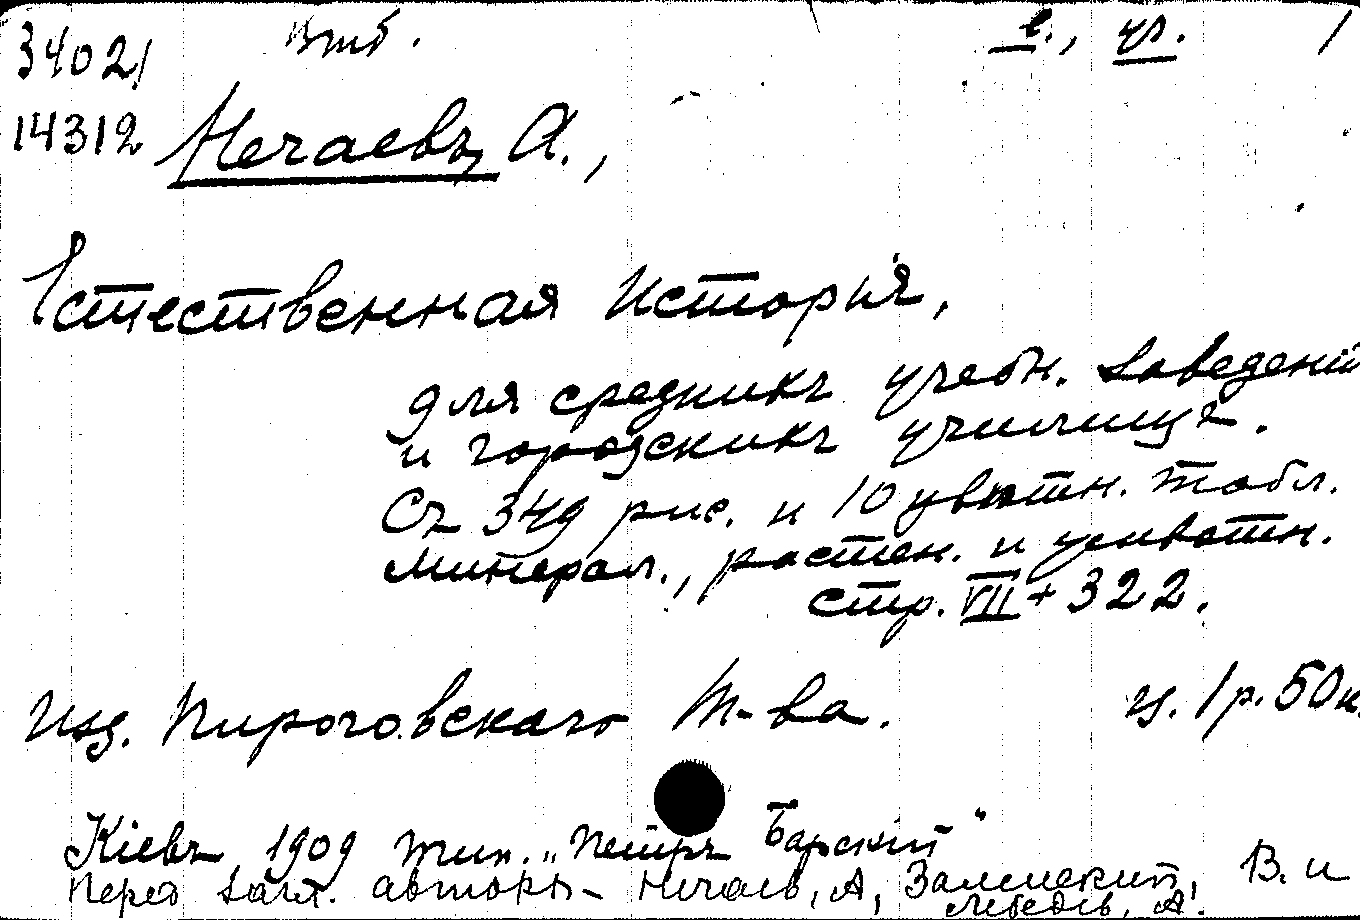 3402/ втб. е., ул. /
14312 Нечаевъ, А.,
Естественная исторія,
для среднихъ учебн. заведеній
и городскихъ училищъ.
Съ 349 рис. и 10 цвѣтн. табл.
минерал., растен. и животн.
стр. VII + 322.
Изд. Пироговскаго Т-ва. ц. 1 р. 50 к.
Кіевъ 1909 тип. „Петръ Барскій"
Перед загл. авторы - Нечаев, А, Заленский, В. и
Лебедев, А.